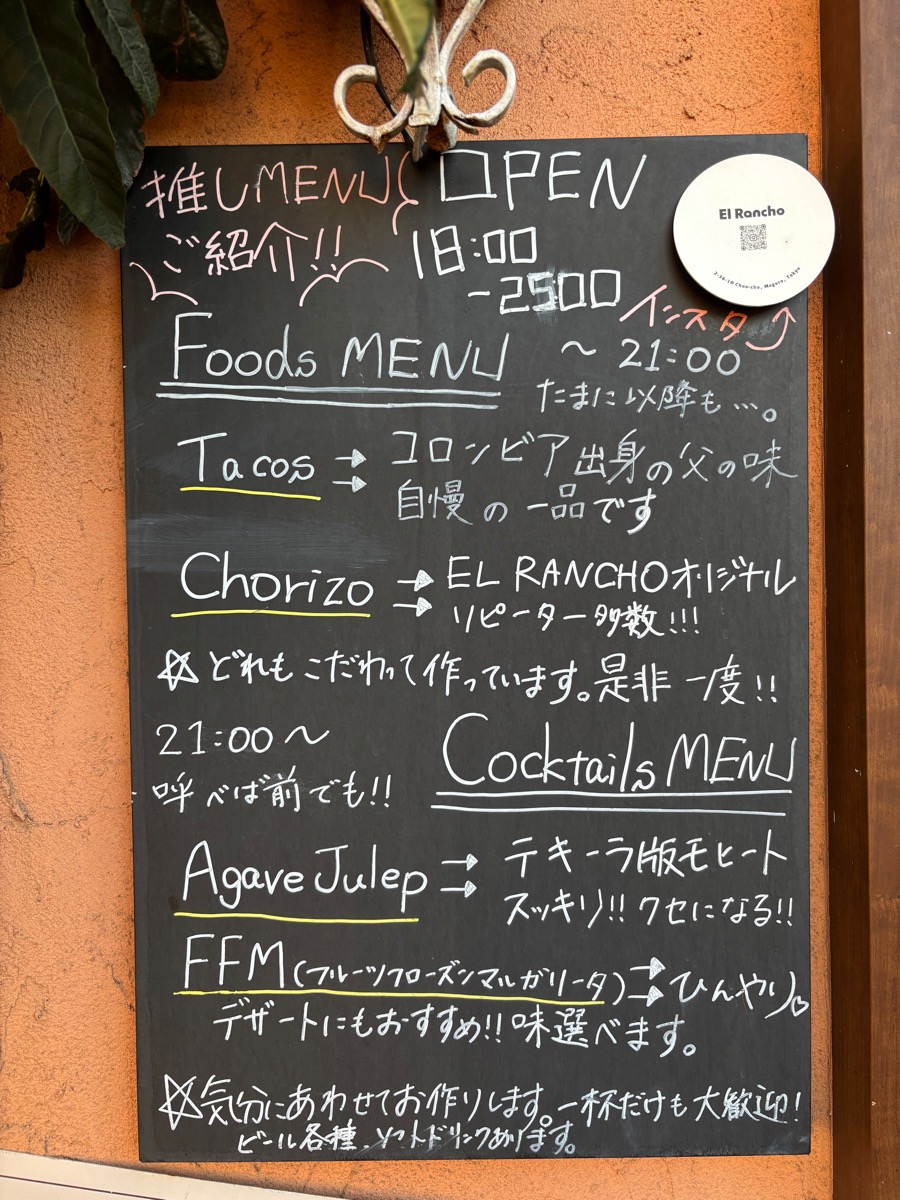 推しMENU
ご紹介!!
OPEN
18:00
-2500
El Rancho
2-36-10 Chuo-cho, Meguro, Tokyo
インスタ
Foods MENU
～21:00
たまに以降も…。
Tacos → コロンビア出身の父の味
→ 自慢の一品です
Chorizo → EL RANCHOオリジナル
→ リピーター多数!!!
☆どれもこだわって作っています。是非一度!!
21:00～
呼べば前でも!!
Cocktails MENU
Agave Julep → テキーラ版モヒート
→ スッキリ!! クセになる!!
FFM(フルーツフローズンマルガリータ)→ひんやり。
デザートにもおすすめ!! 味選べます。
☆気分にあわせてお作りします。一杯だけも大歓迎!
ビール各種、ソフトドリンクあります。